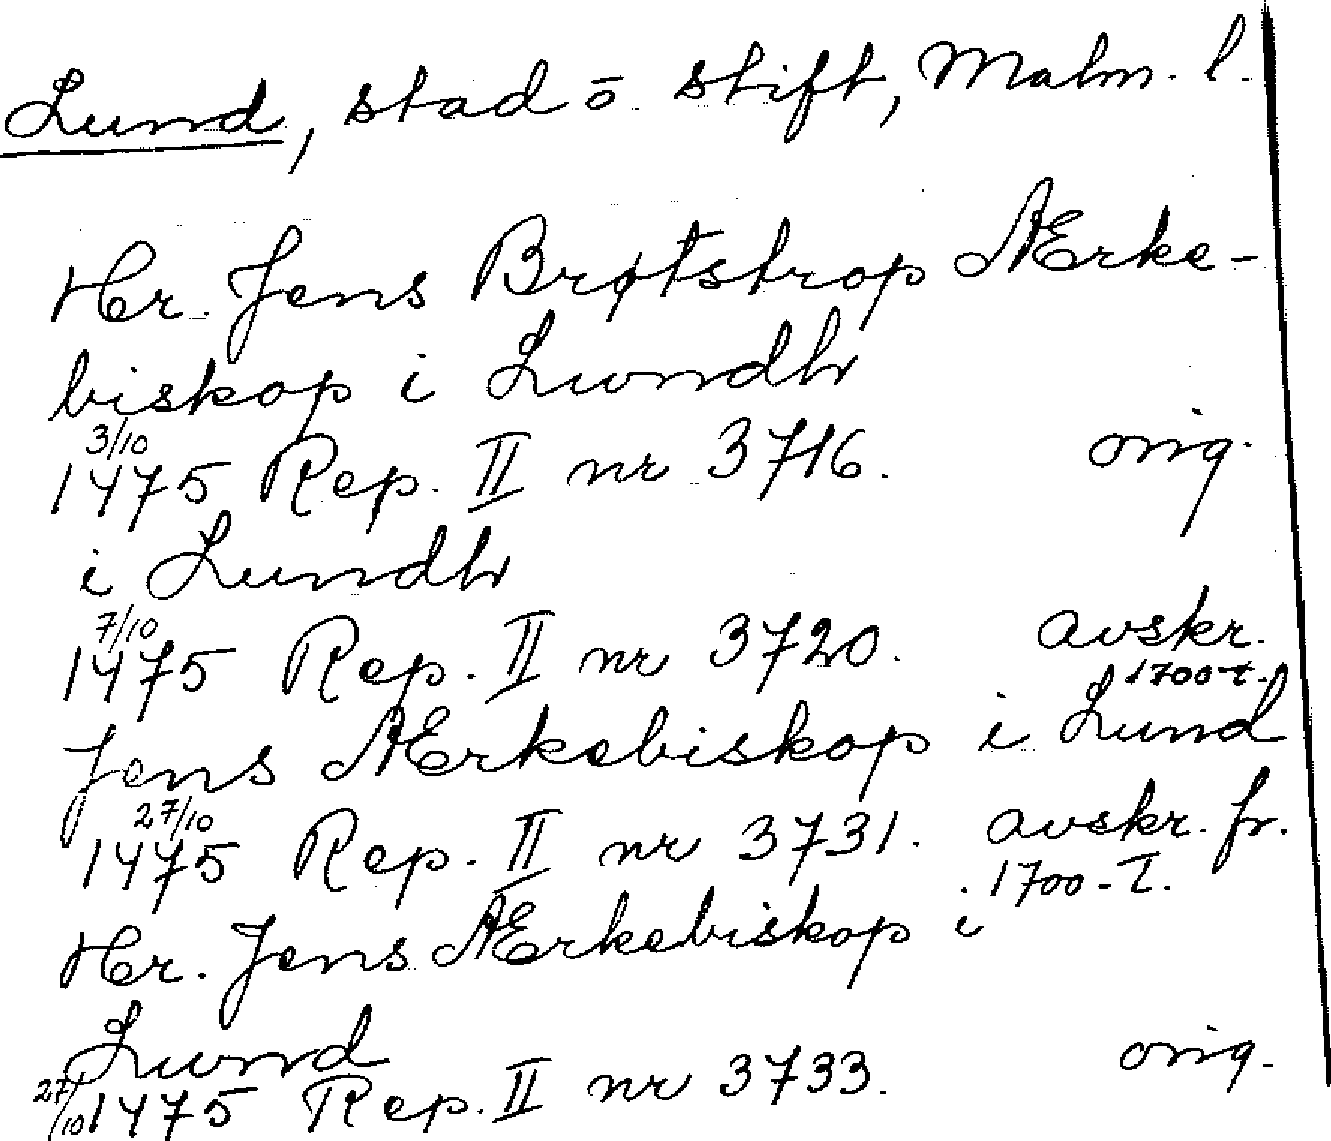 Lund, stad o. stift, Malm. l.
Hr. Jens Brøtstrop Ærke-
biskop i Lundh
3/10
1475 Rep. II nr 3716. orig.
i Lundh
7/10
1475 Rep. II nr 3720. avskr.
1700-t.
Jens Ærkebiskop i Lund
27/10
1475 Rep. II nr 3731. avskr. fr.
1700-t.
Hr. Jens Ærkebiskop i
Lund
27/10 1475 Rep. II nr 3733. orig.